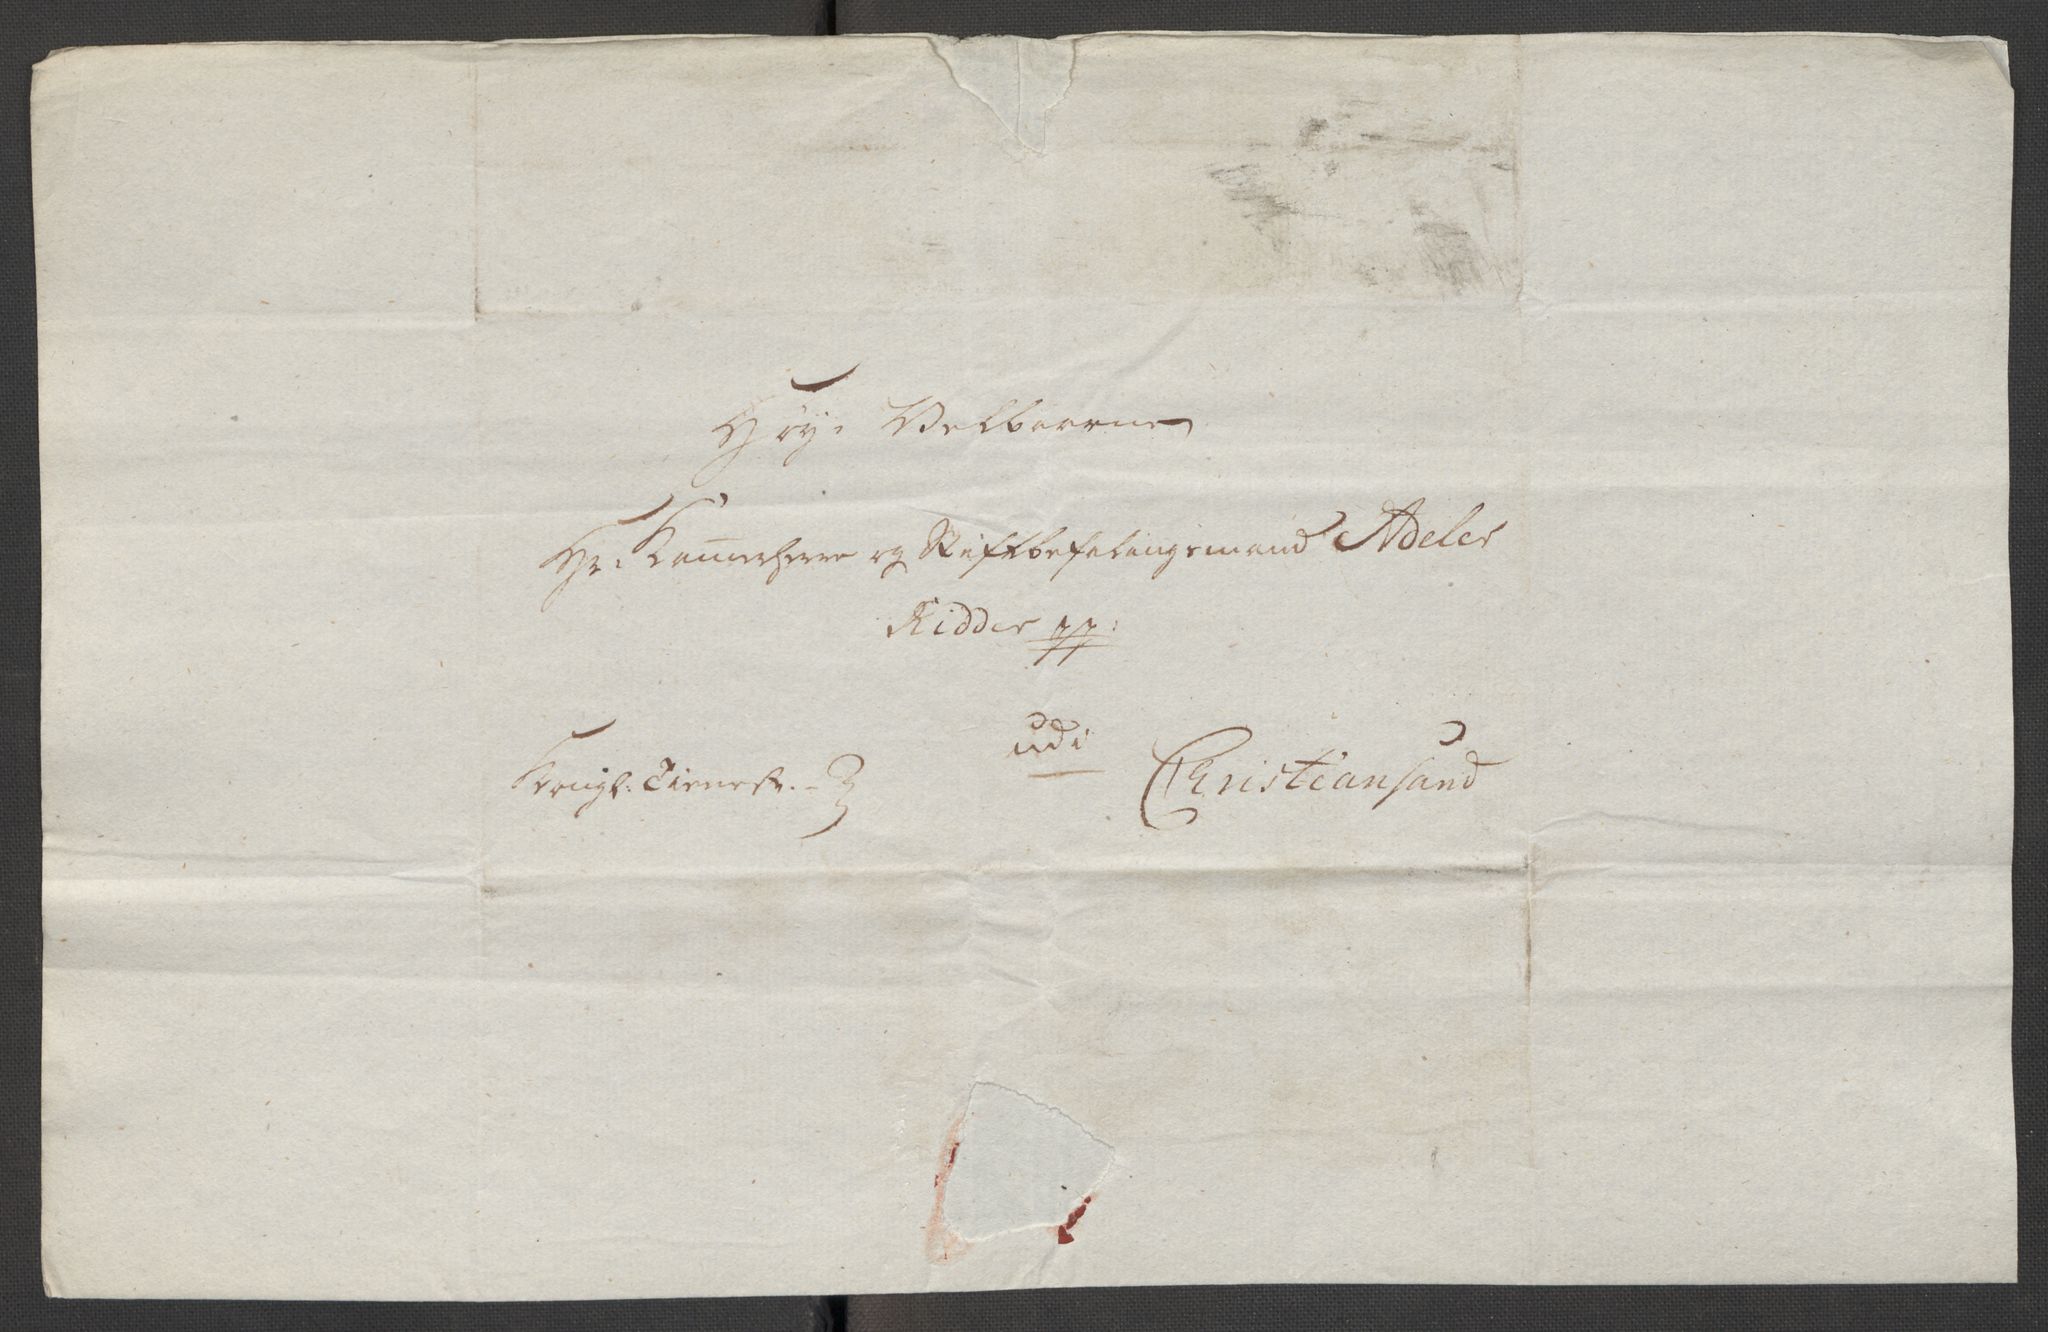 Høy: Velbaarne
Hr. Kammerherre og Stiftbefalingsmand Adeler
Ridder pp:
udi
Kongl: Tieneste. Christiansand